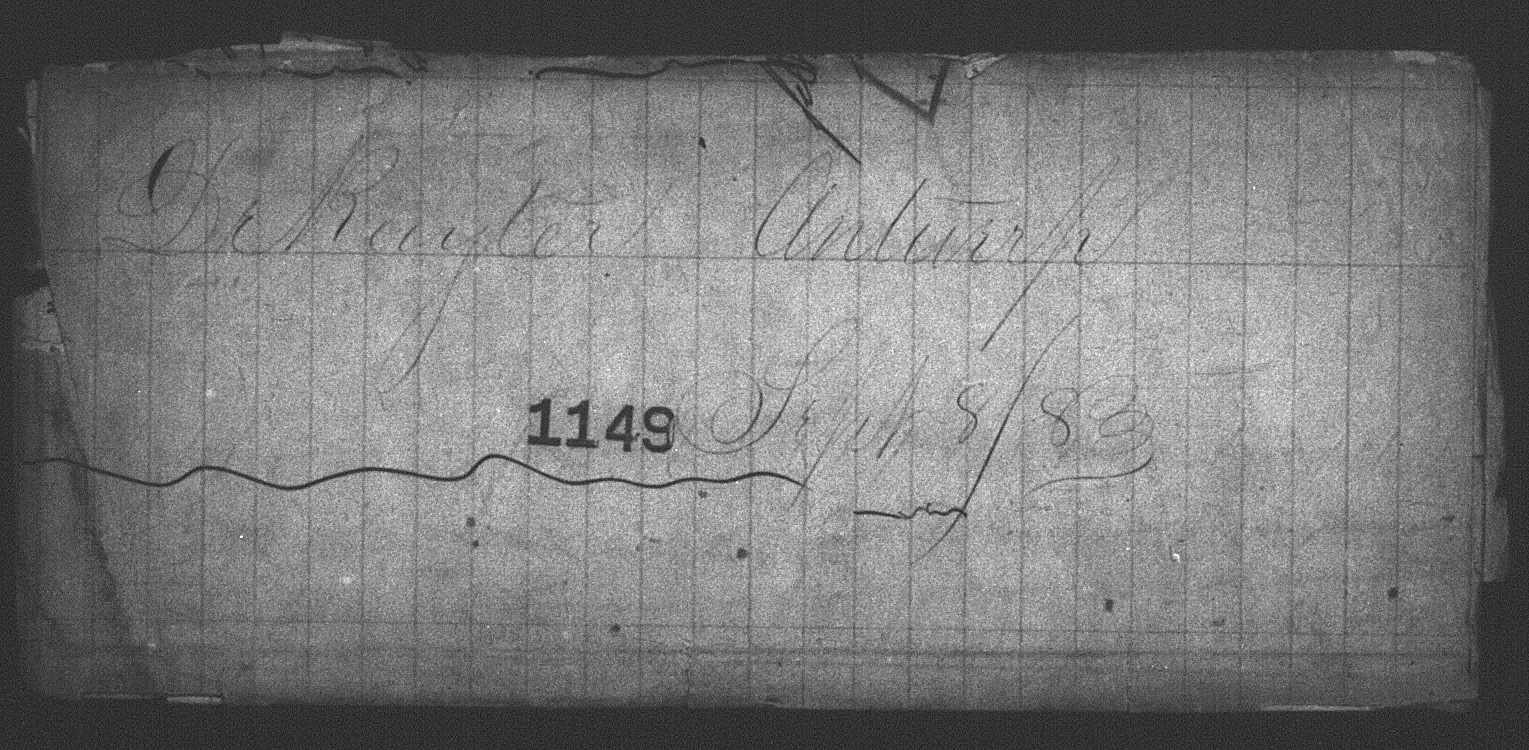 De Ruyter Antwerp
1149 Sept 8/83